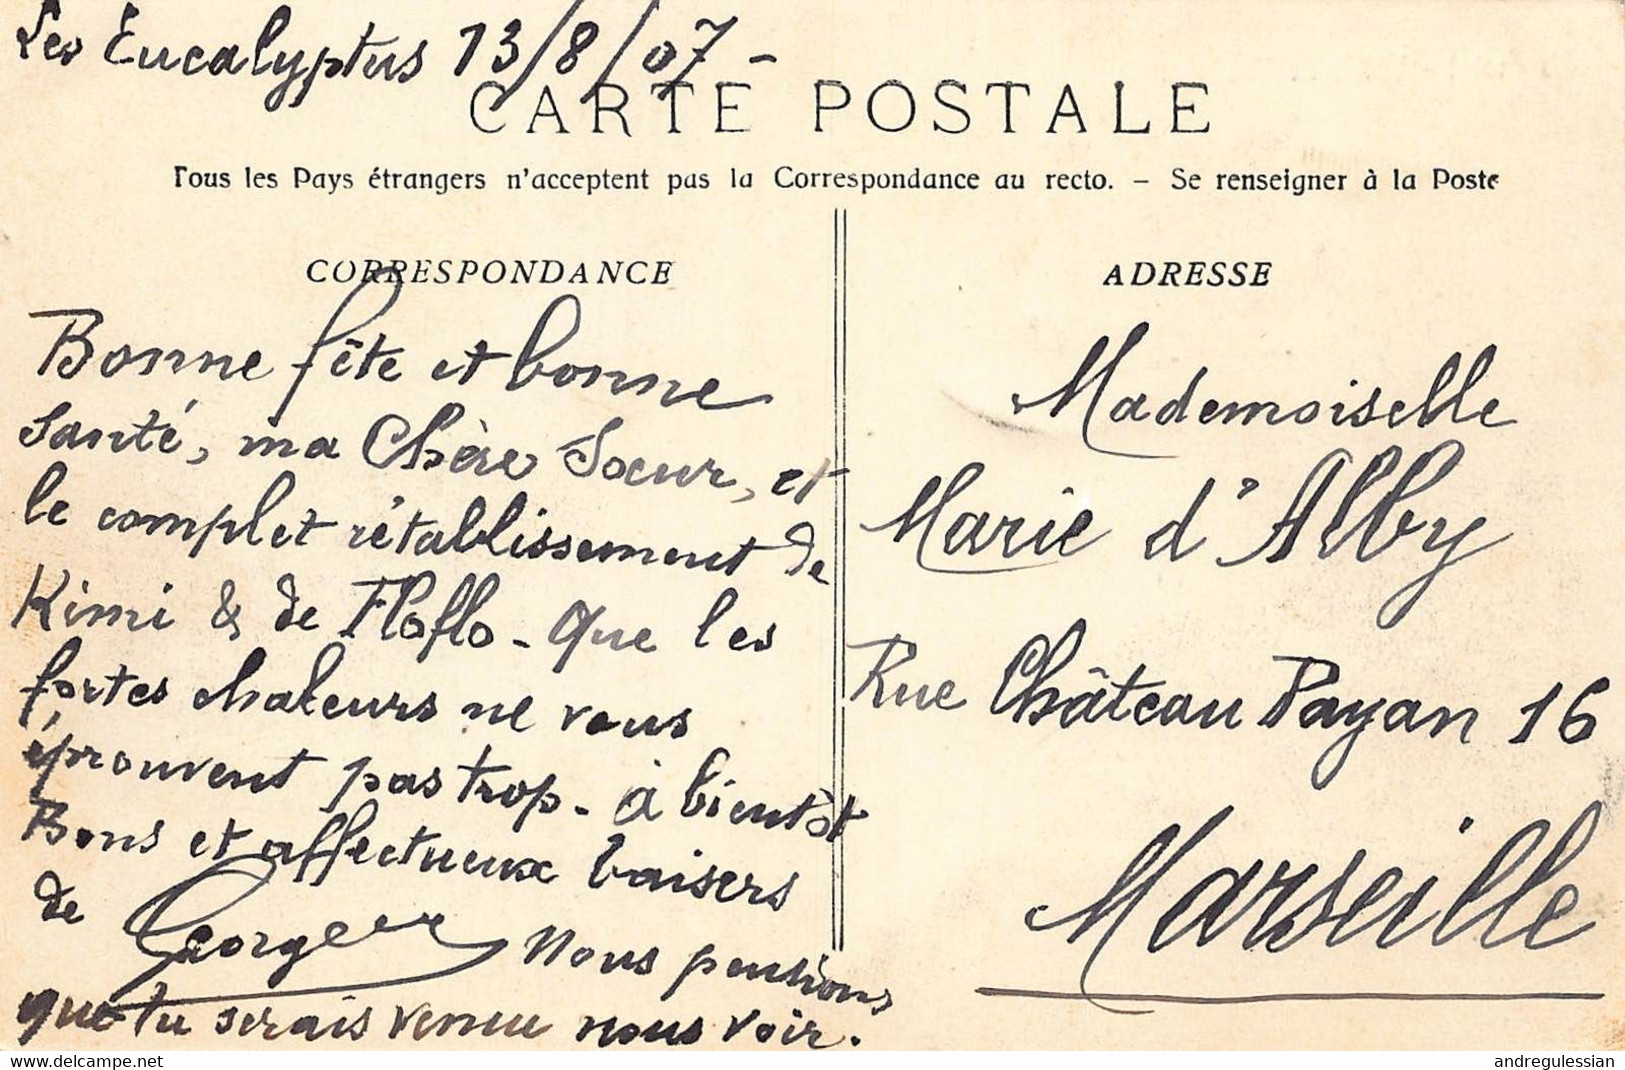 Les Eucalyptus 13/8/07 -
CARTE POSTALE
Tous les Pays étrangers n'acceptent pas la Correspondance au recto. - Se renseigner à la Poste
CORRESPONDANCE
Bonne fête et bonne
Santé, ma Chère Soeur, et
le complet rétablissement de
Kimi & de Floflo - Que les
fortes chaleurs ne vous
éprouvent pas trop - à bientôt
Bons et affectueux baisers
de Georges Nous pensions
que tu serais venue nous voir.
ADRESSE
Mademoiselle
Marie d'Alby
Rue Château Payan 16
Marseille
delcampe.net
andregulessian